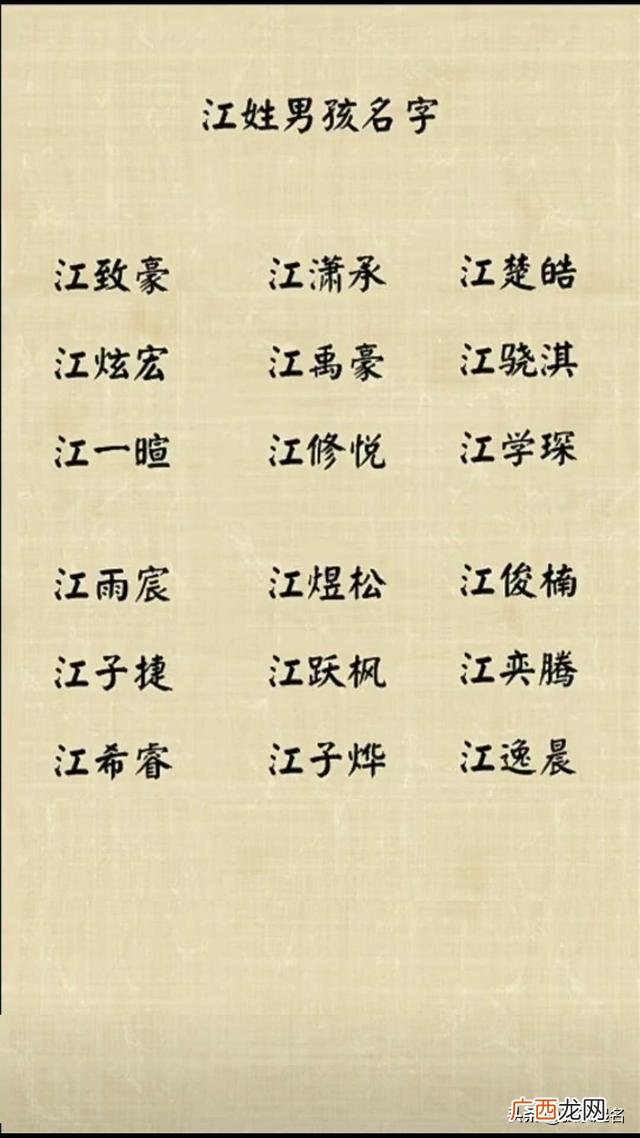 江姓男孩名字
江致豪 江潇承 江楚皓
江炫宏 江禹豪 江骁淇
江一暄 江修悦 江学琛
江雨宸 江煜松 江俊楠
江子捷 江跃枫 江奕腾
江希睿 江子烨 江逸晨
广西龙网
名